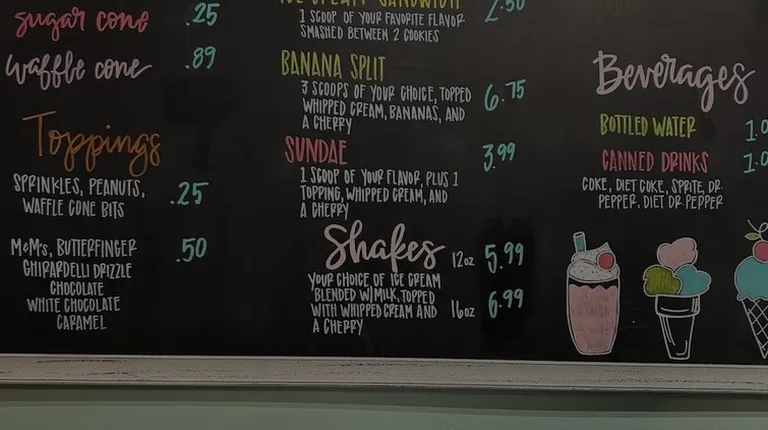 sugar cone .25
waffle cone .89
Toppings
SPRINKLES, PEANUTS,
WAFFLE CONE BITS
.25
M&M's, BUTTERFINGER
GHIRARDELLI DRIZZLE
CHOCOLATE
WHITE CHOCOLATE
CARAMEL
.50
ICE CREAM SANDWICH 2.50
1 SCOOP OF YOUR FAVORITE FLAVOR
SMASHED BETWEEN 2 COOKIES
BANANA SPLIT
3 SCOOPS OF YOUR CHOICE, TOPPED
WHIPPED CREAM, BANANAS, AND
A CHERRY
6.75
SUNDAE 3.99
1 SCOOP OF YOUR FLAVOR, PLUS 1
TOPPING, WHIPPED CREAM, AND
A CHERRY
Shakes
12oz 5.99
YOUR CHOICE OF ICE CREAM
BLENDED W/MILK, TOPPED
WITH WHIPPED CREAM AND
A CHERRY
16oz 6.99
Beverages
BOTTLED WATER 1.0
CANNED DRINKS 1.0
COKE, DIET COKE, SPRITE, DR.
PEPPER, DIET DR PEPPER